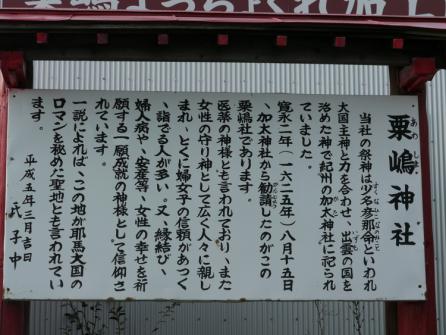 粟嶋神社
あわしま
当社の祭神は少名彦那命といわれ
大国主神と力を合わせ、出雲の国を
治めた神で紀州の加太神社に祀られ
ていました。
寛永二年(一六二五年)八月十五日
、加太神社から勧請したのがこの
粟嶋社であります。
医薬の神様とも言われており、また
女性の守り神として広く人々に親し
まれ、とくに婦女子の信頼があつく
、詣でる人が多い。又、縁結び、
婦人病や、安産等、女性の幸せを祈
願する一願成就の神様として信仰さ
れています。
一説によれば、この地が耶馬大国の
ロマンを秘めた聖地とも言われてい
ます。
平成五年三月吉日
氏子中